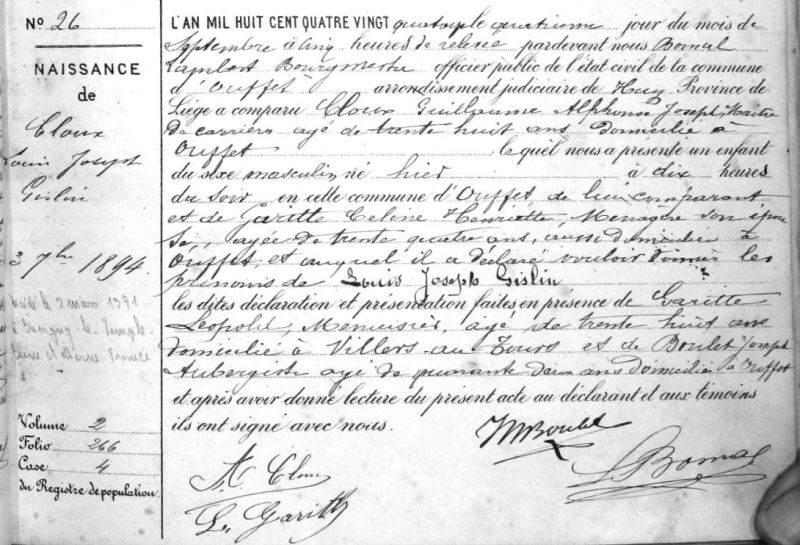 Nº 26
NAISSANCE
de
Cloux
Louis Joseph
Gislin
3 7bre 1894.
décédé le 9 mars 1971
à Savigny-le-Temple
Seine et Marne France
Volume 2
Folio 266
Case 4
du Registre de population.
L'AN MIL HUIT CENT QUATRE VINGT quatorze quatrieme jour du mois de
Septembre à cinq heures de relevée pardevant nous Bomal
Lambert Bourgmestre officier public de l'état civil de la commune
d'Ouffet arrondissement judiciaire de Huy Province de
Liège a comparu Cloux Guillaume Alphonse Joseph, Maitre
de carriere agé de trente huit ans domicilié a
Ouffet le quel nous a présenté un enfant
du sixe masculin, né hier à dix heures
du soir, en cette commune d'Ouffet, de lui comparant
et de Garitte Celine Henriette, Menagere son épou
se, agée de trente quatre ans, aussi domiciliée à
Ouffet, et auquel il a déclaré vouloir donner les
prénoms de Louis Joseph Gislin
les dites déclaration et présentation faites en présence de Garitte
Leopold, Menuisier, agé de trente huit ans
domicilié à Villers au Tours et de Boulet Joseph
Aubergiste agé de quarante deux ans domicilié a Ouffet
et après avoir donné lecture du présent acte au déclarant et aux témoins
ils ont signé avec nous.
Boulet
A Cloux
L Bomal
L. Garitte